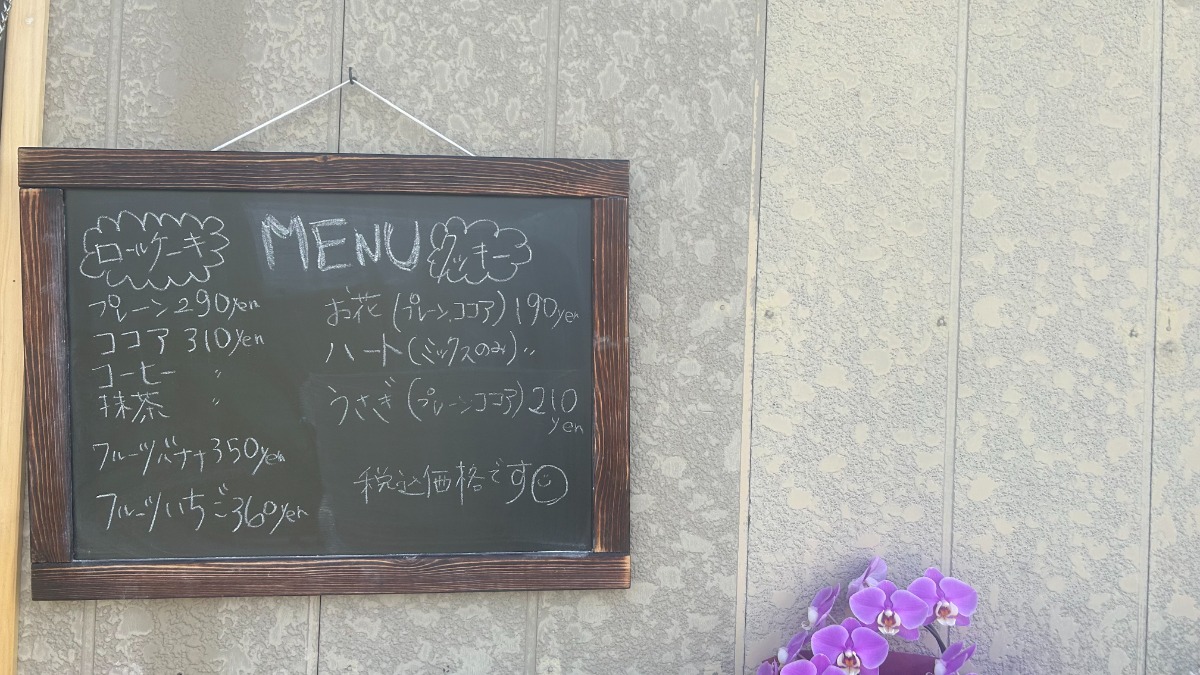 MENU
ロールケーキ
プレーン 290yen
ココア 310yen
コーヒー 〃
抹茶 〃
フルーツバナナ 350yen
フルーツいちご 360yen
クッキー
お花 (プレーン.ココア) 190yen
ハート (ミックスのみ) 〃
うさぎ (プレーンココア) 210
yen
税込価格です☺